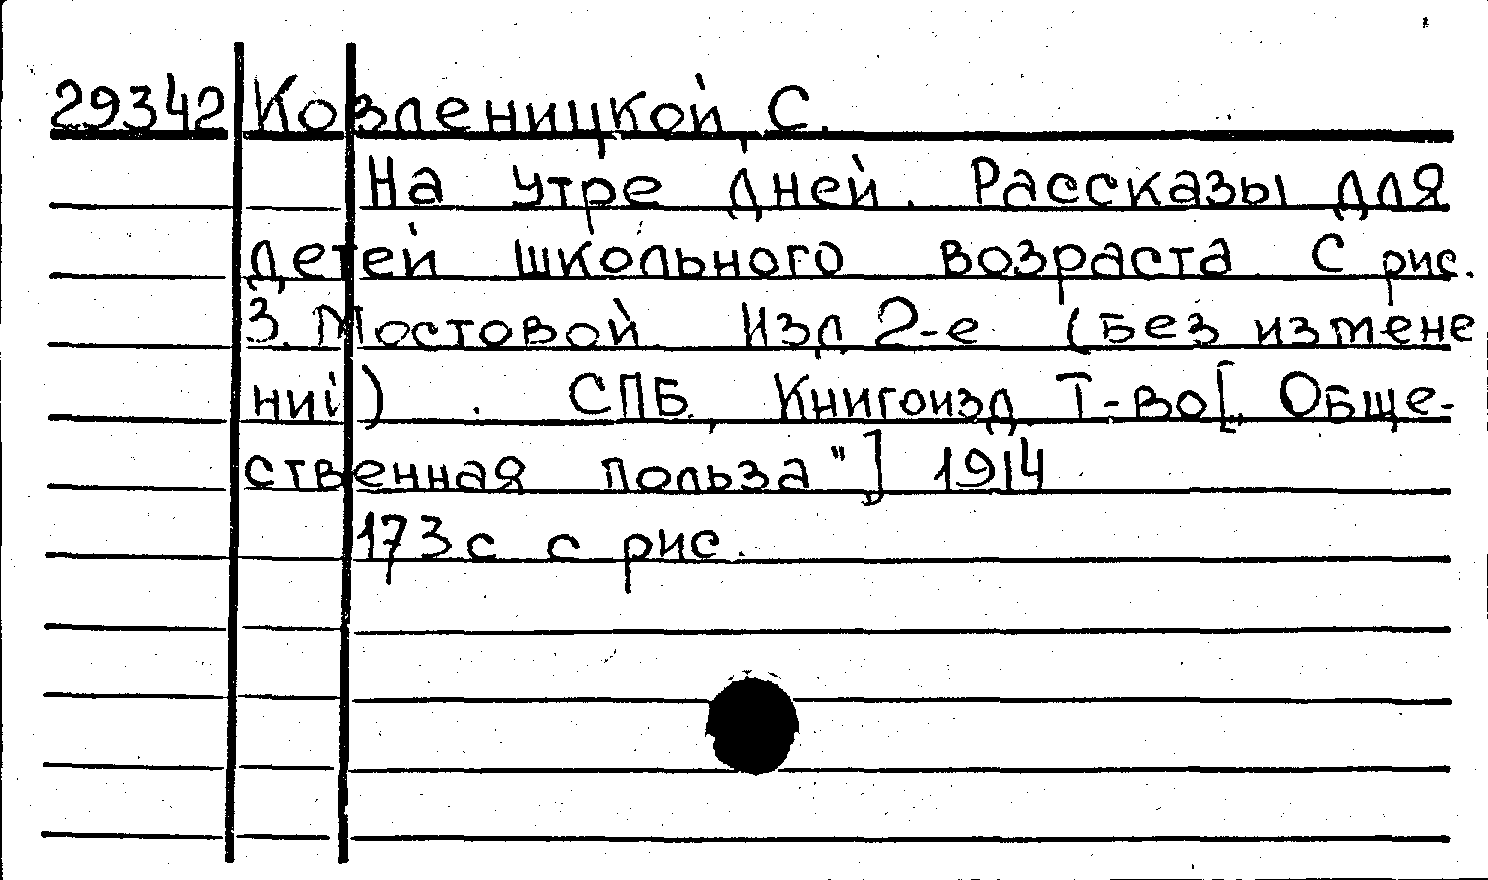 29342 Козленицкой, С.
На утре дней. Рассказы для
детей школьного возраста С рис.
З. Мостовой Изд 2-е (Без измене
ний) . СПБ, Книгоизд Т-во[„Обще-
ственная польза"] 1914
173 с с рис.